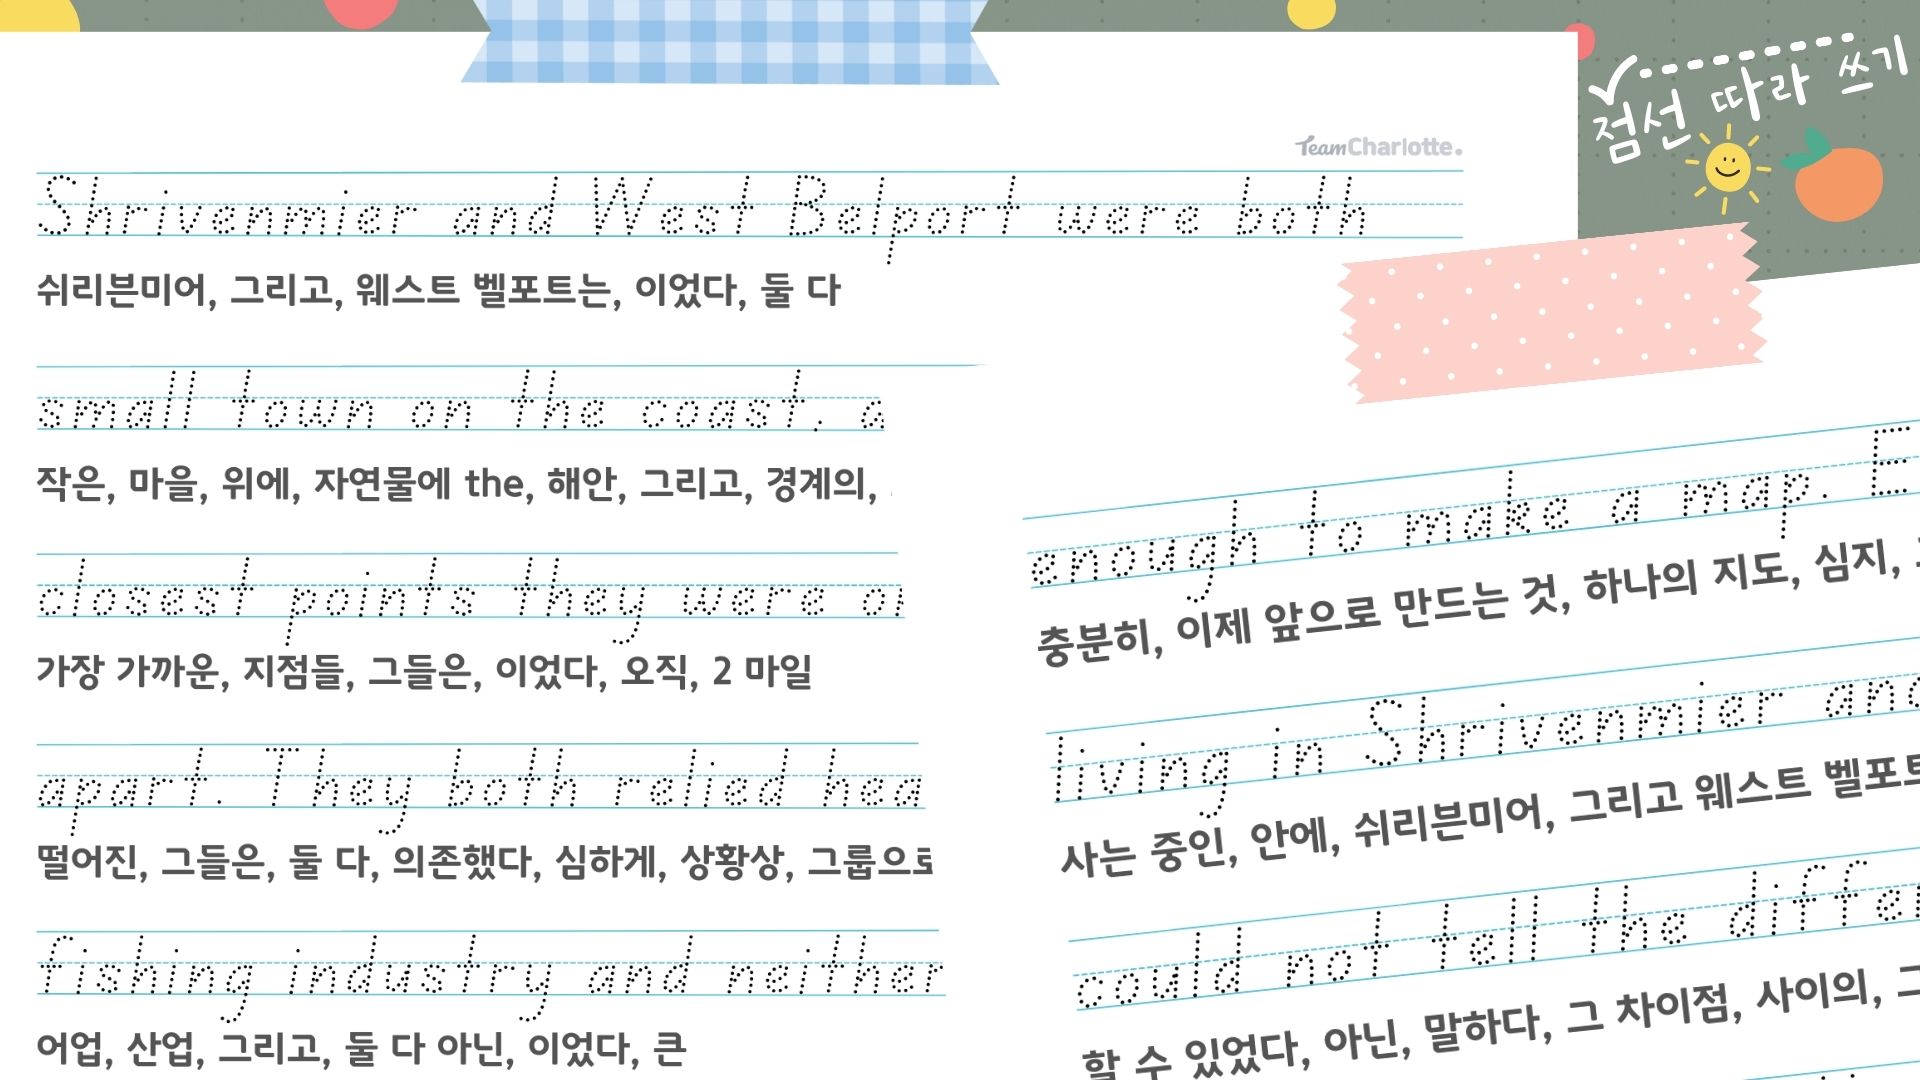 점선 따라 쓰기
TeamCharlotte.
Shrivenmier and West Belport were both
쉬리븐미어, 그리고, 웨스트 벨포트는, 이었다, 둘 다
small town on the coast,
작은, 마을, 위에, 자연물에 the, 해안, 그리고, 경계의,
closest points they were
가장 가까운, 지점들, 그들은, 이었다, 오직, 2 마일
apart. They both relied
떨어진, 그들은, 둘 다, 의존했다, 심하게, 상황상, 그룹으로
fishing industry and neither
어업, 산업, 그리고, 둘 다 아닌, 이었다, 큰
enough to make a map. E
충분히, 이제 앞으로 만드는 것, 하나의 지도, 심지,
living in Shrivenmier and
사는 중인, 안에, 쉬리븐미어, 그리고 웨스트 벨포트
could not tell the
할 수 있었다, 아닌, 말하다, 그 차이점, 사이의,